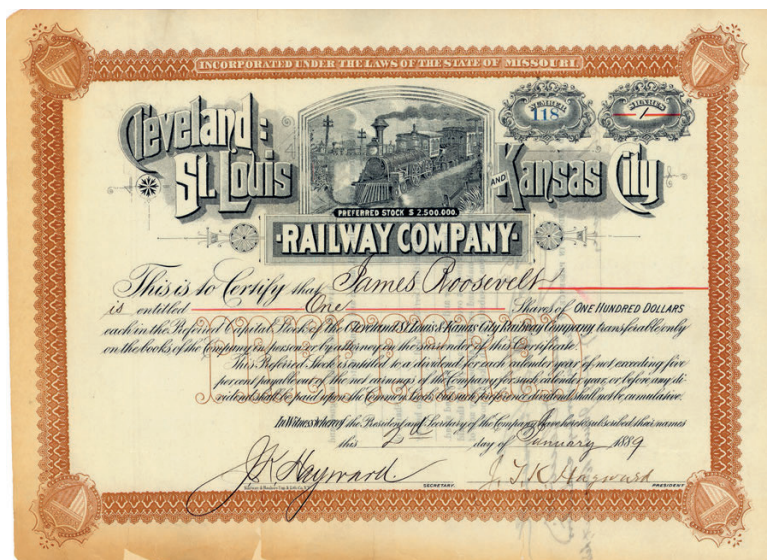 INCORPORATED UNDER THE LAWS OF THE STATE OF MISSOURI
NUMBER 118
SHARES 1
Cleveland:
St. Louis AND Kansas City
PREFERRED STOCK $ 2.500.000.
·RAILWAY COMPANY·
This is to Certify that James Roosevelt
is entitled One Shares of ONE HUNDRED DOLLARS
each in the Preferred Capital Stock of the Cleveland St Louis & Kansas City Railway Company transferable only
on the books of the Company in person or by attorney on the surrender of this Certificate.
This Preferred Stock is entitled to a dividend for each calender year of not exceeding five
per cent payable out of the net earnings of the Company for such calender year, or before any di-
vidend shall be paid upon the Common Stock, but such preference dividend shall not be cumulative.
In Witness whereof the President and Secretary of the Company have hereto subscribed their names
this 2d day of January 1889
J K Hayward SECRETARY. J. T. K. Hayward PRESIDENT